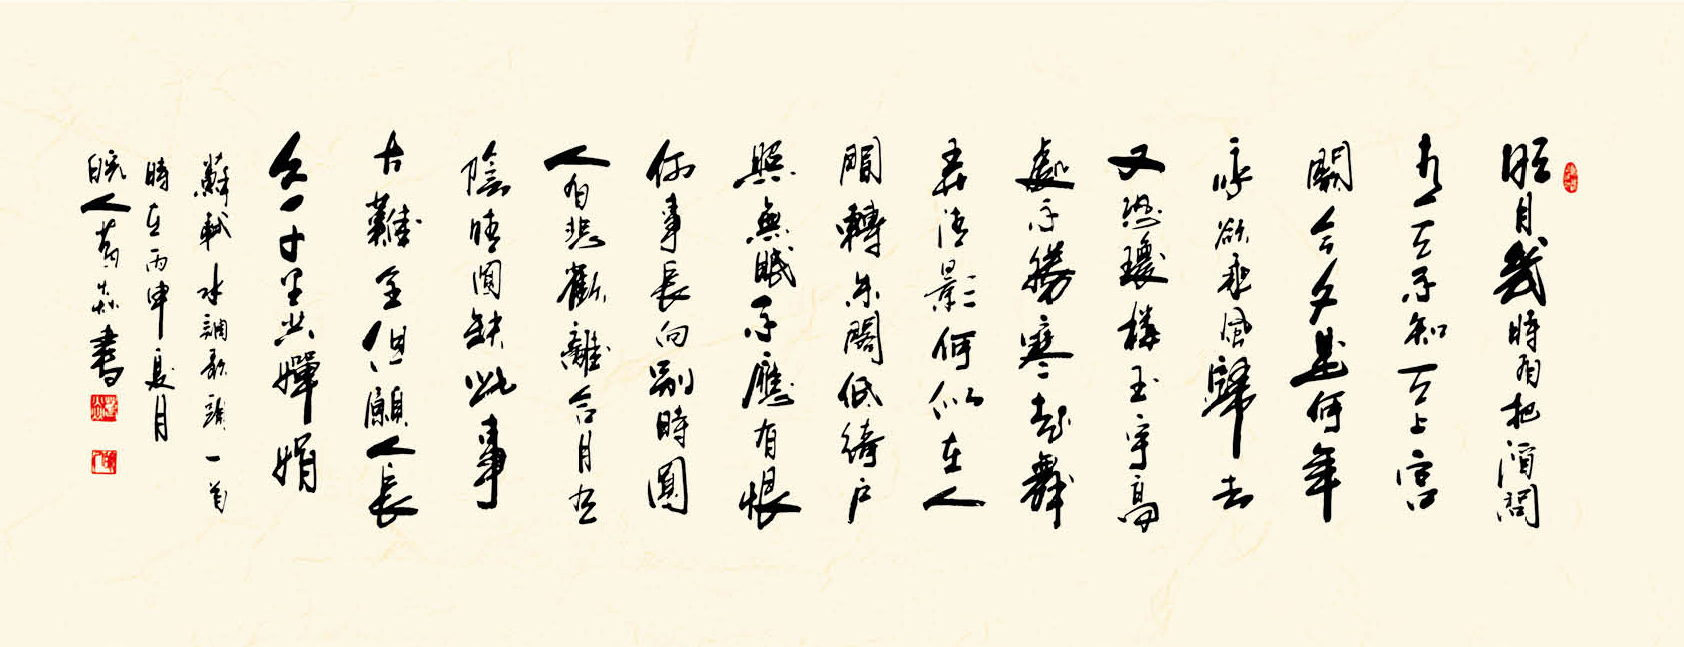 明月幾時有把酒問
青天不知天上宮
闕今夕是何年
我欲乘風歸去
又恐瓊樓玉宇高
處不勝寒起舞
弄清影何似在人
間轉朱閣低綺戶
照無眠不應有恨
何事長向別時圓
人有悲歡離合月有
陰晴圓缺此事
古難全但願人長
久千里共嬋娟
蘇軾水調歌頭一首
時在丙申夏月
皖人黃焱書